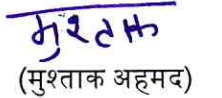 मुश्ताक
(मुश्ताक अहमद)